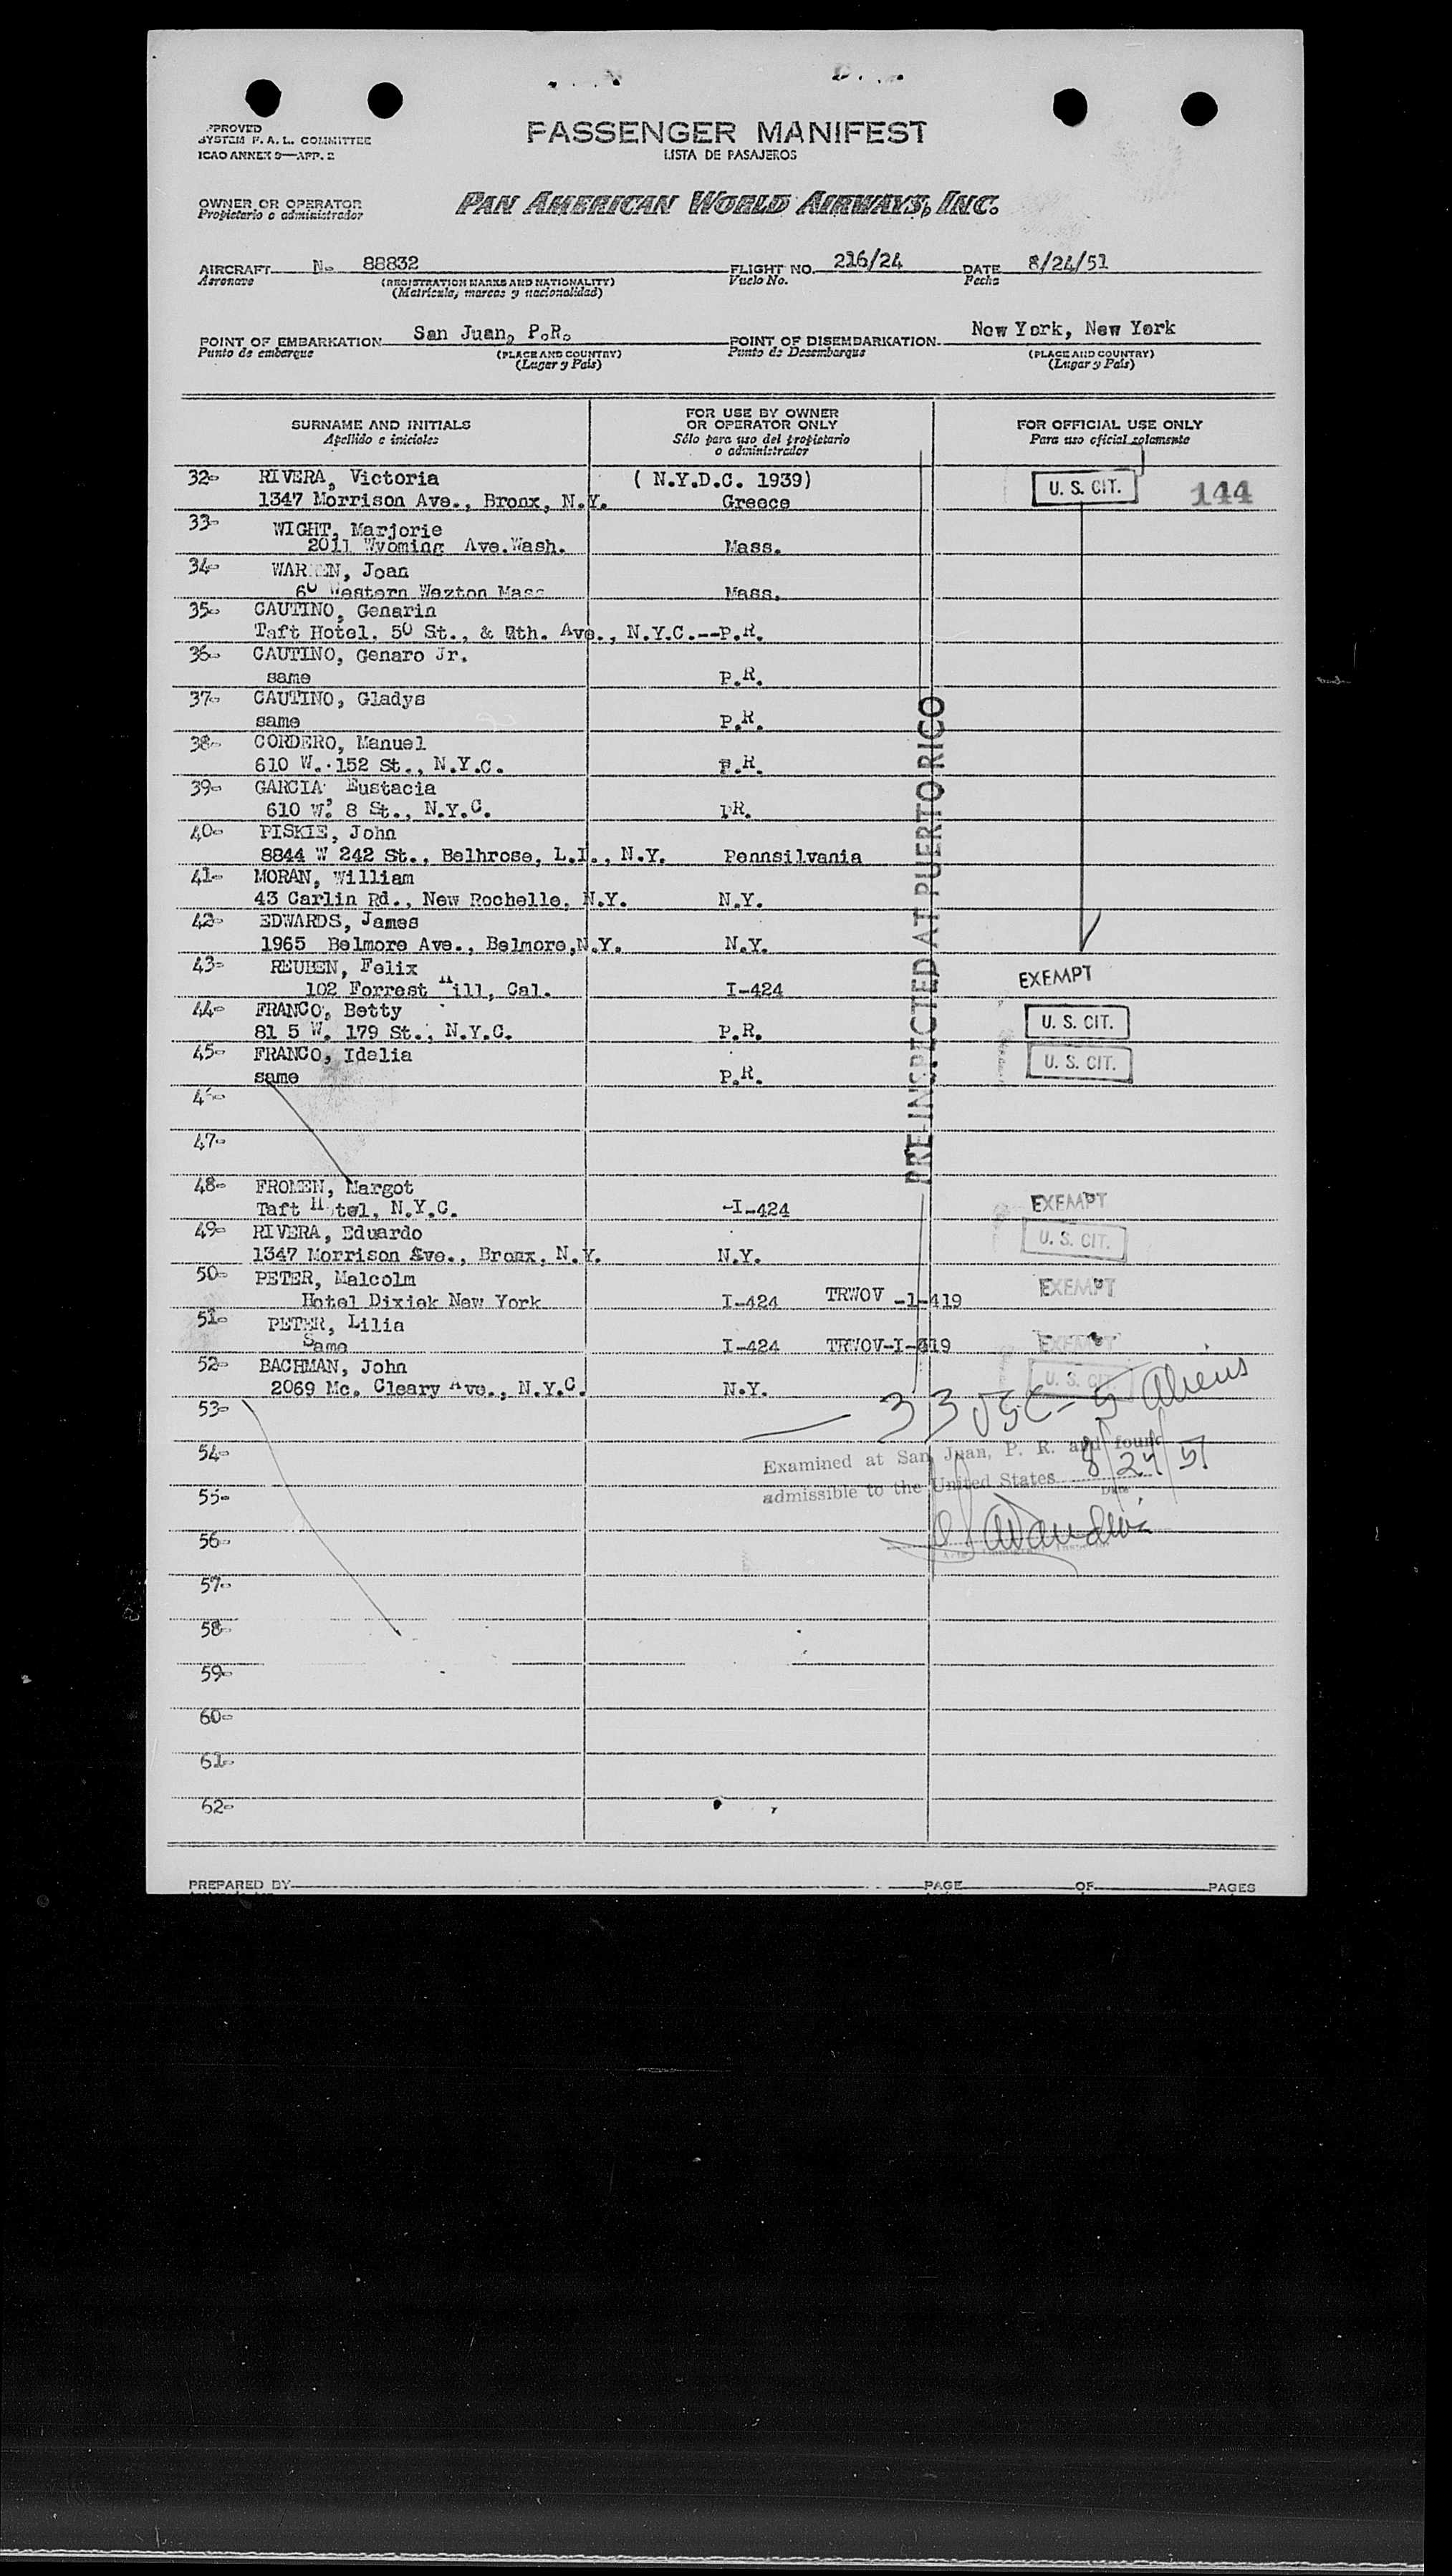 PROVED
SYSTEM F. A. L. COMMITTEE
ICAO ANNEX 9—APP. 2
PASSENGER MANIFEST
LISTA DE PASAJEROS
OWNER OR OPERATOR
Propietario o administrador
PAN AMERICAN WORLD AIRWAYS, INC.
AIRCRAFT N. 88832 FLIGHT NO. 216/24 DATE 8/24/51
Aeronave (REGISTRATION MARKS AND NATIONALITY) Vuelo No. Fecha
(Matrícula, marcas y nacionalidad)
POINT OF EMBARKATION San Juan, P.R. POINT OF DISEMBARKATION New York, New York
Punto de embarque (PLACE AND COUNTRY) Punto de Desembarque (PLACE AND COUNTRY)
(Lugar y País) (Lugar y País)
SURNAME AND INITIALS
Apellido e iniciales
FOR USE BY OWNER
OR OPERATOR ONLY
Sólo para uso del propietario
o administrador
FOR OFFICIAL USE ONLY
Para uso oficial solamente
32- RIVERA, Victoria ( N.Y.D.C. 1939) U. S. CIT. 144
1347 Morrison Ave., Bronx, N.Y. Greece
33- WIGHT, Marjorie
2011 Wyoming Ave.Wash. Mass.
34- WARREN, Joan
60 Western Wezton Mass Mass.
35- CAUTINO, Genarin
Taft Hotel, 50 St., & 7th. Ave., N.Y.C.--P.R.
36- CAUTINO, Genaro Jr.
same P.R.
37- CAUTINO, Gladys
same P.R.
38- CORDERO, Manuel
610 W. 152 St., N.Y.C. P.R.
39- GARCIA, Eustacia
610 W. 8 St., N.Y.C. PR.
40- PISKIE, John
8844 W 242 St., Belhrose, L.I., N.Y. Pennsilvania
41- MORAN, William
43 Carlin Rd., New Rochelle, N.Y. N.Y.
42- EDWARDS, James
1965 Belmore Ave., Belmore,N.Y. N.Y.
43- REUBEN, Felix EXEMPT
102 Forrest Hill, Cal. I-424
44- FRANCO, Betty U. S. CIT.
81 5 W. 179 St., N.Y.C. P.R.
45- FRANCO, Idalia U. S. CIT.
same P.R.
46-
47-
PRE-INSPECTED AT PUERTO RICO
48- FROMEN, Margot EXEMPT
Taft H tel, N.Y.C. -I-424
49- RIVERA, Eduardo U. S. CIT.
1347 Morrison Ave., Bronx, N.Y. N.Y.
50- PETER, Malcolm EXEMPT
Hotel Dixiek New York I-424 TRWOV -1-419
51- PETER, Lilia EXEMPT
Same I-424 TRWOV-I-419
52- BACHMAN, John U. S. CIT.
2069 Mc. Cleary Ave., N.Y.C. N.Y.
53- 33 USC - 5 Aliens
54- Examined at San Juan, P. R. and found
admissible to the United States 8/24/51
Date
55-
56-
57-
58-
59-
60-
61-
62-
PREPARED BY PAGE OF PAGES